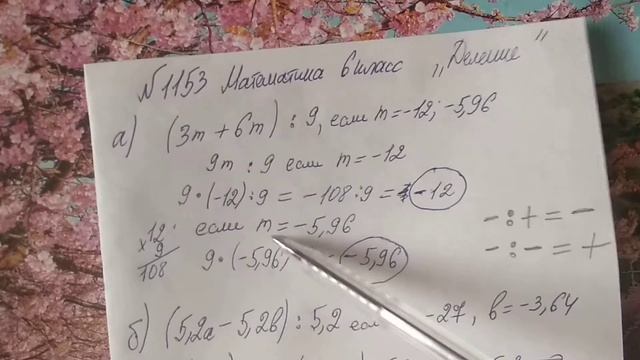 №1153 Математика 6 класс „Деление"
а) (3m + 6m) : 9, если m = -12; -5,96
9m : 9 если m = -12
9 · (-12) : 9 = -108 : 9 = -12
если m = -5,96
12
× 9
108
9 · (-5,96) -5,96
- : + = -
- : - = +
б) (5,2a - 5,2b) : 5,2 если -27, b = -3,64